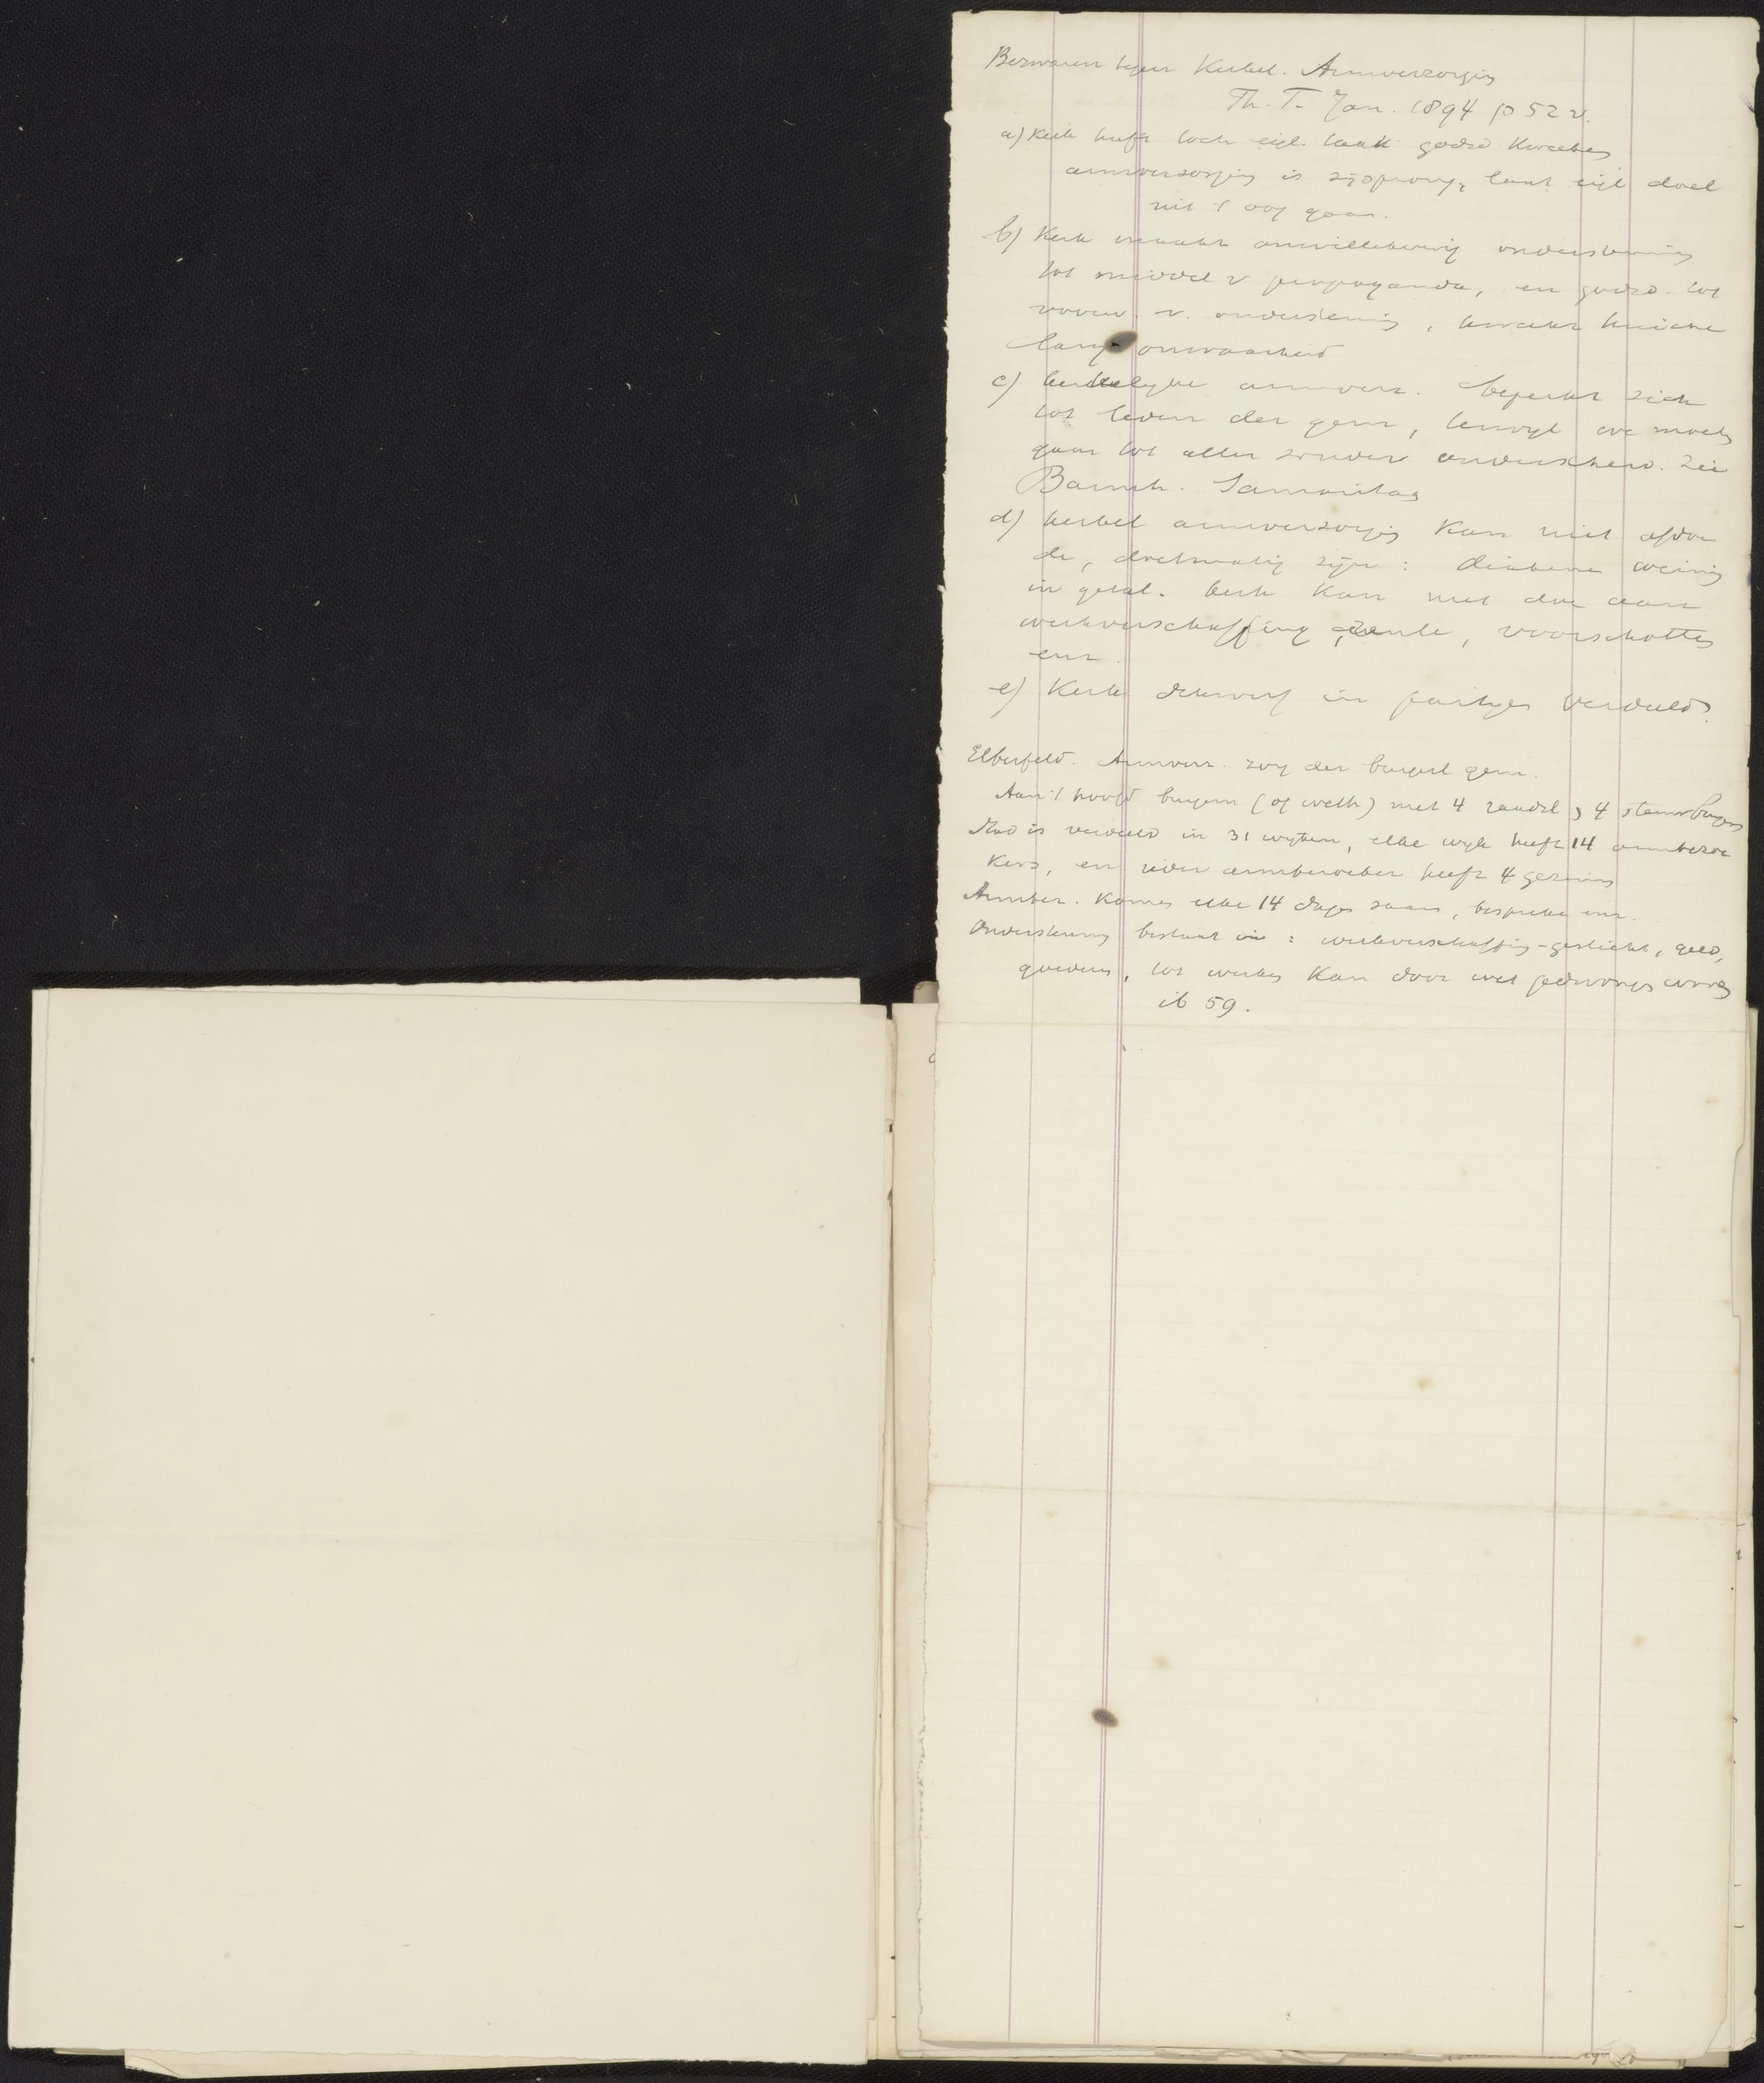 Bezwaren tegen Kerkel. Armverzorging
Th. T. Jan. 1894 p 52 v.
a) Kerk heeft toch eigl. taak godsd kweeken
armverzorging is zijsprong, laat eigl doel
uit 't oog gaan.
b) Kerk maakt onwillekeurig ondersteuning
tot middel v propaganda, en godsd. tot
voorw. v. ondersteuning, kweekt
onwaarheid
c) kerkelyke armverz. beperkt zich
tot leden der gem, terwyl we moeten
gaan tot allen zonder onderscheid. Zie
Barmh. Samaritaan
d) kerkel armverzorging kan niet afdoen
de, doelmatig zijn: diakenen weinig
in getal. kerk kan niet doen aan
werkverschaffing, voorschotten
enz.
e) Kerk in partyen verdeeld.
Elberfeld. Armverz. zorg der burgerl gem.
Aan 't hoofd burgem (of weth) met 4 raadsl, 4 stembugers
Stad is verdeeld in 31 wyken, elke wyk heeft 14 armbezoe
kers, en ieder armbezoeker heeft 4 gezinnen
Armbez. komen elke 14 dagen saam, bespreken enz.
Ondersteuning bestaat in: werkverschaffing - gesticht, geld,
goederen, tot werken kan door wet gedwongen worden
ib 59.